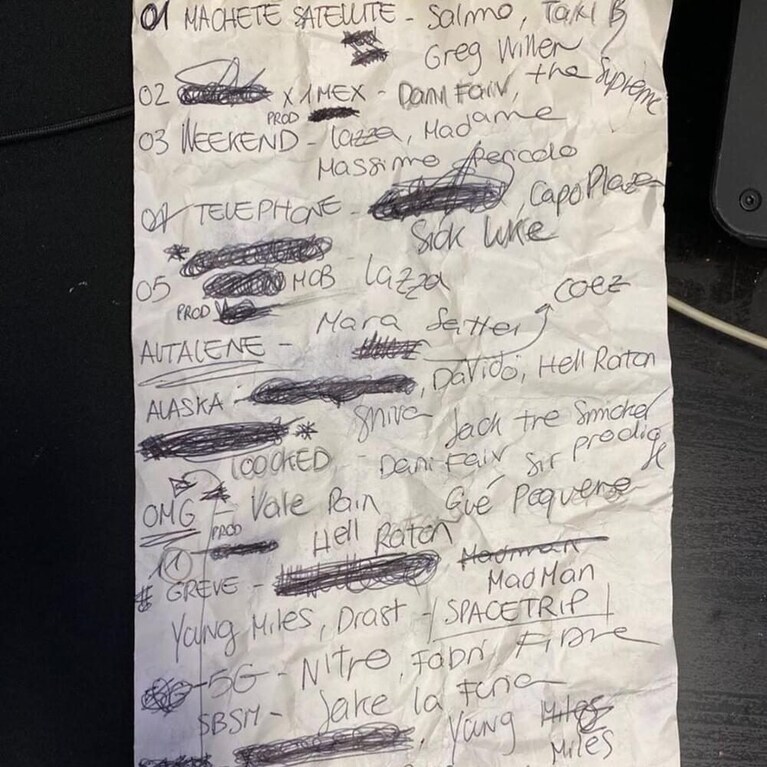 01 MACHETE SATELLITE - Salmo, Taxi B
Greg Willen
the Supreme
02 X 1 MEX - Dani Faiv,
PROD
03 WEEKEND - lazza, Madame
Massimo Pericolo
04 TELEPHONE - , Capo Plaza
Sick Luke
*
05 MOB lazza
PROD
coez
Mara Sattei
ALTALENE -
ALASKA - , Davido, Hell Raton
shiva Jack the Smoker
*
LOOKED - Dani Faiv Sir prodige
OMG - Vale Pain Gué Pequeno
PROD Hell Raton
11
# GREVE - Madman
MadMan
Young Miles, Drast - SPACETRIP
5G - Nitro, Fabri Fibra
SBSM - Jake la Furia
, Young Miles
Miles